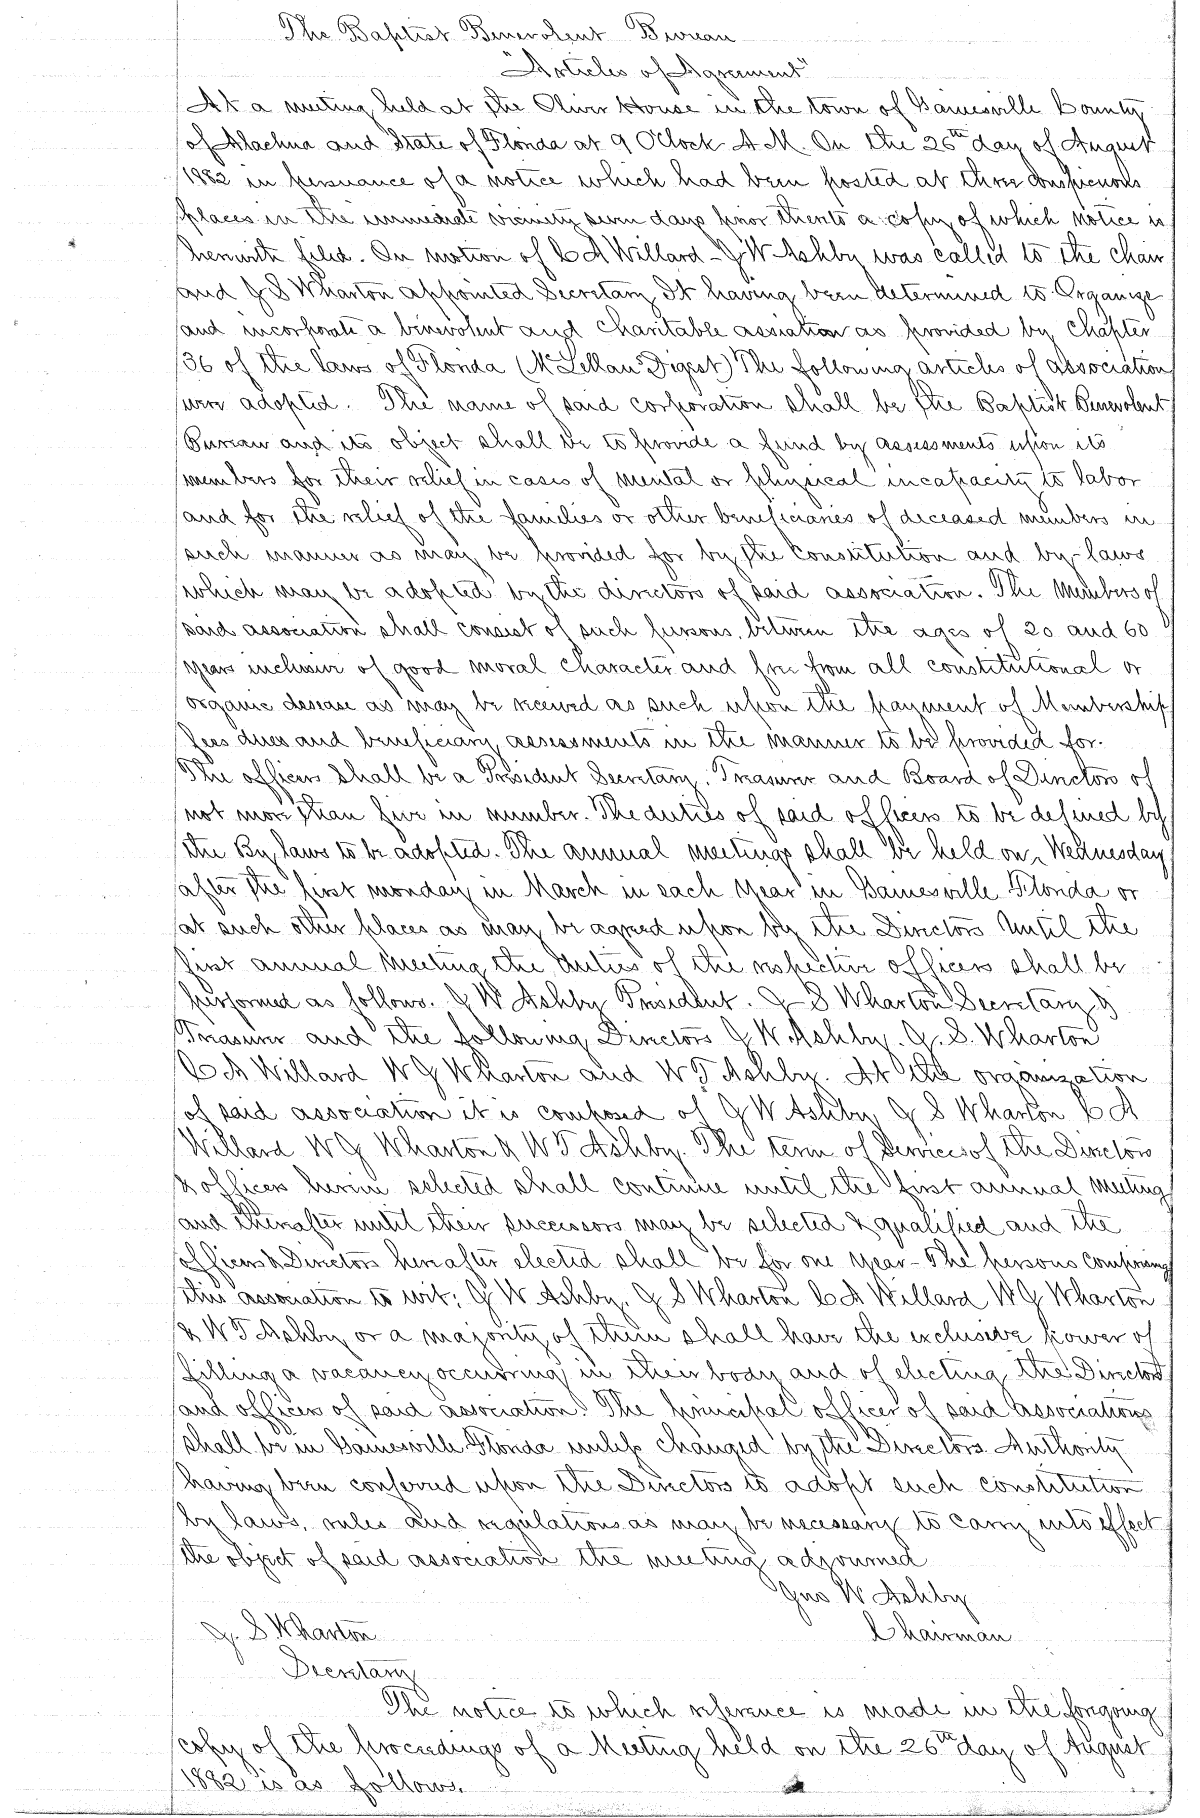 The Baptist Benevolent Bureau
"Articles of Agreement"
At a meeting held at the Oliver House in the town of Gainesville County
of Alachua and State of Florida at 9 OClock A M. On the 26th day of August
1882 in persuance of a notice which had been posted at three conspicuous
places in the immediate vicinity seven days prior thereto a copy of which notice is
herewith filed. On motion of C A Willard - J W Ashby was called to the chair
and J S Wharton appointed Secretary It having been determined to Organize
and incorporate a benevolent and Charitable assiation as provided by Chapter
36 of the laws of Florida (McLellan Digest) The following articles of association
were adopted. The name of said corporation shall be the Baptist Benevolent
Bureau and its object shall be to provide a fund by assessments upon its
members for their relief in cases of mental or physical incapacity to labor
and for the relief of the families or other beneficiaries of deceased members in
such manner as may be provided for by the Constitution and by-laws
which may be adopted by the directors of said association. The Members of
said association shall consist of such persons, between the ages of 20 and 60
years inclusive of good moral Character and free from all constitutional or
organic desease as may be received as such upon the payment of Membership
fees dues and beneficiary assessments in the manner to be provided for.
The officers shall be a President Secretary, Treasurer and Board of Directors of
not more than five in number. The duties of said officers to be defined by
the By laws to be adopted. The annual meetings shall be held on Wednesday
after the first monday in March in each Year in Gainesville Florida or
at such other places as may be agreed upon by the Directors Until the
first annual Meeting the duties of the respective officers shall be
performed as follows. J W Ashby President. J S Wharton Secretary &
Treasurer and the following Directors J W Ashby. J. S. Wharton
C A Willard W J Wharton and W T Ashby. At the organization
of said association it is composed of J W Ashby J S Wharton C A
Willard W J Wharton & W T Ashby. The term of Services of the Directors
& officers herein selected shall continue until the first annual Meeting
and thereafter until their successors may be selected & qualified and the
officers & Directors hereafter elected shall be for one Year - The persons Comprising
this association to wit; J W Ashby, J S Wharton C A Willard W J Wharton
& W T Ashby or a majority of them shall have the exclusive power of
filling a vacancy occurring in their body and of electing the Directors
and officers of said association. The principal officer of said Associations
shall be in Gainesville Florida unless changed by the Directors. Authority
having been conferred upon the Directors to adopt such constitution
by laws, rules and regulations as may be necessary to carry into effect
the object of said association the meeting adjourned
Jno W Ashby
J. S Wharton
Chairman
Secretary
The notice to which reference is made in the foregoing
copy of the proceedings of a Meeting held on the 26th day of August
1882 is as follows.